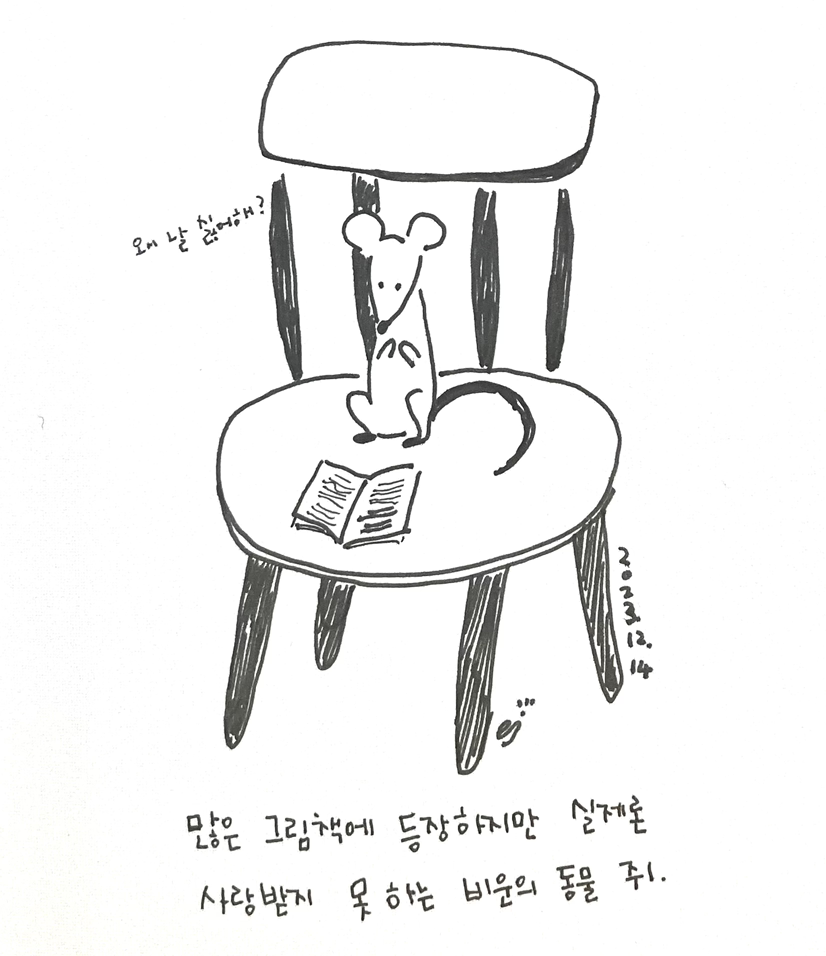 왜 날 싫어해?
2023.12.14
ej
많은 그림책에 등장하지만 실제론
사랑받지 못 하는 비운의 동물 쥐.